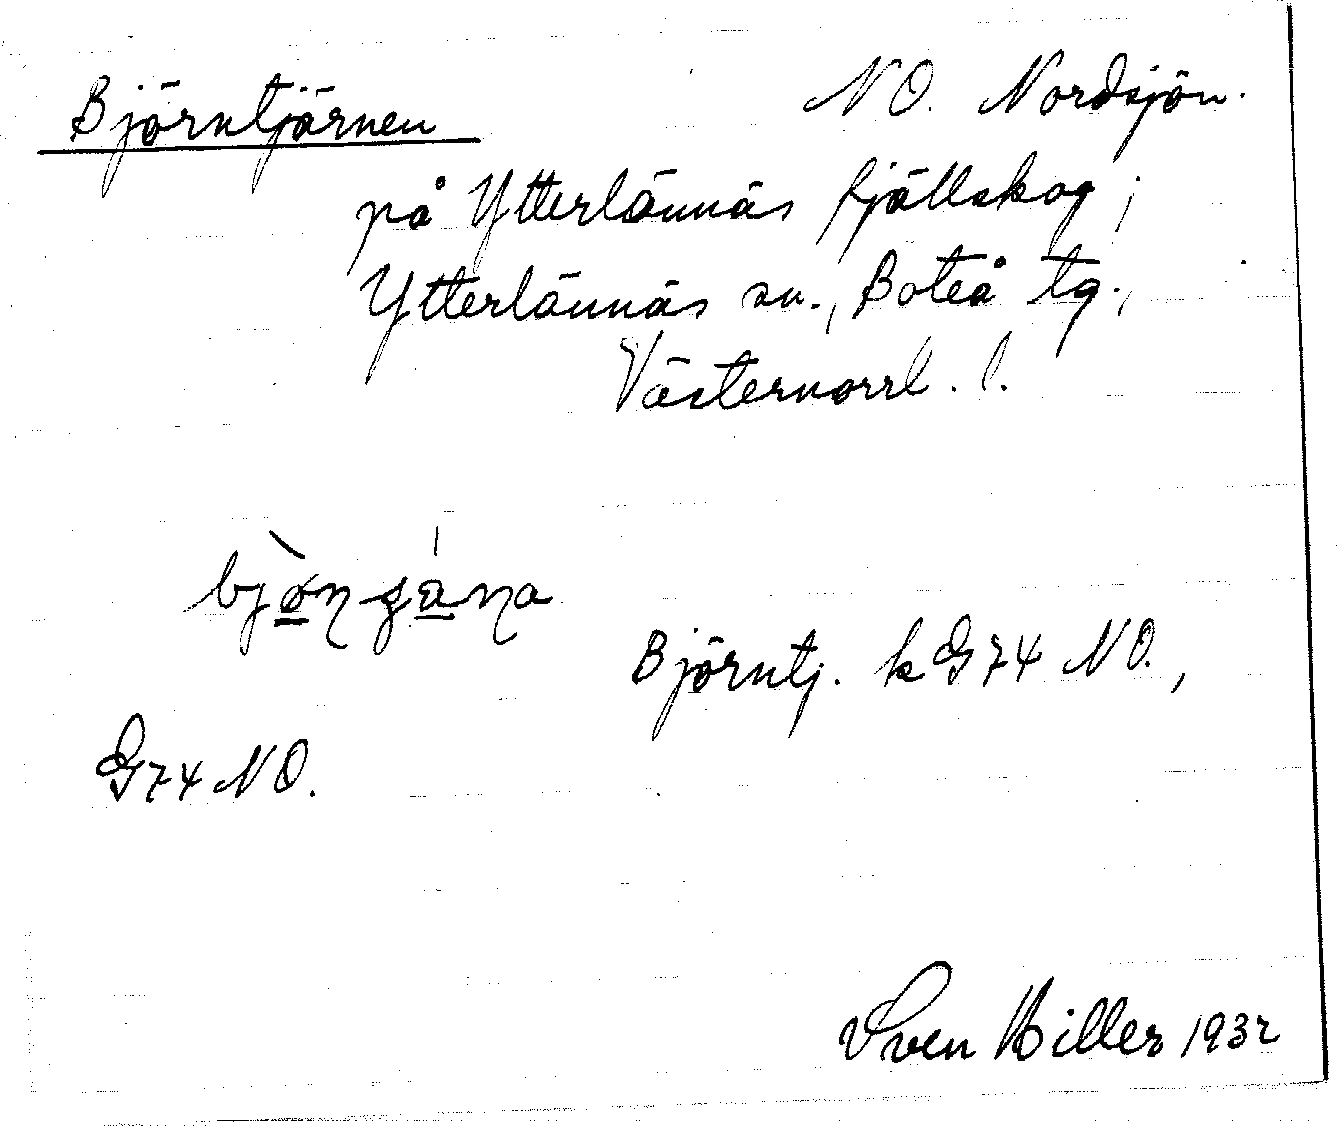 Björntjärnen
NO. Nordsjön.
på Ytterlännäs fjällskog;
Ytterlännäs sn., Boteå tg.,
Västernorrl. l.
Björntj. k G74 NO.,
G74 NO.
Sven Hiller 1932